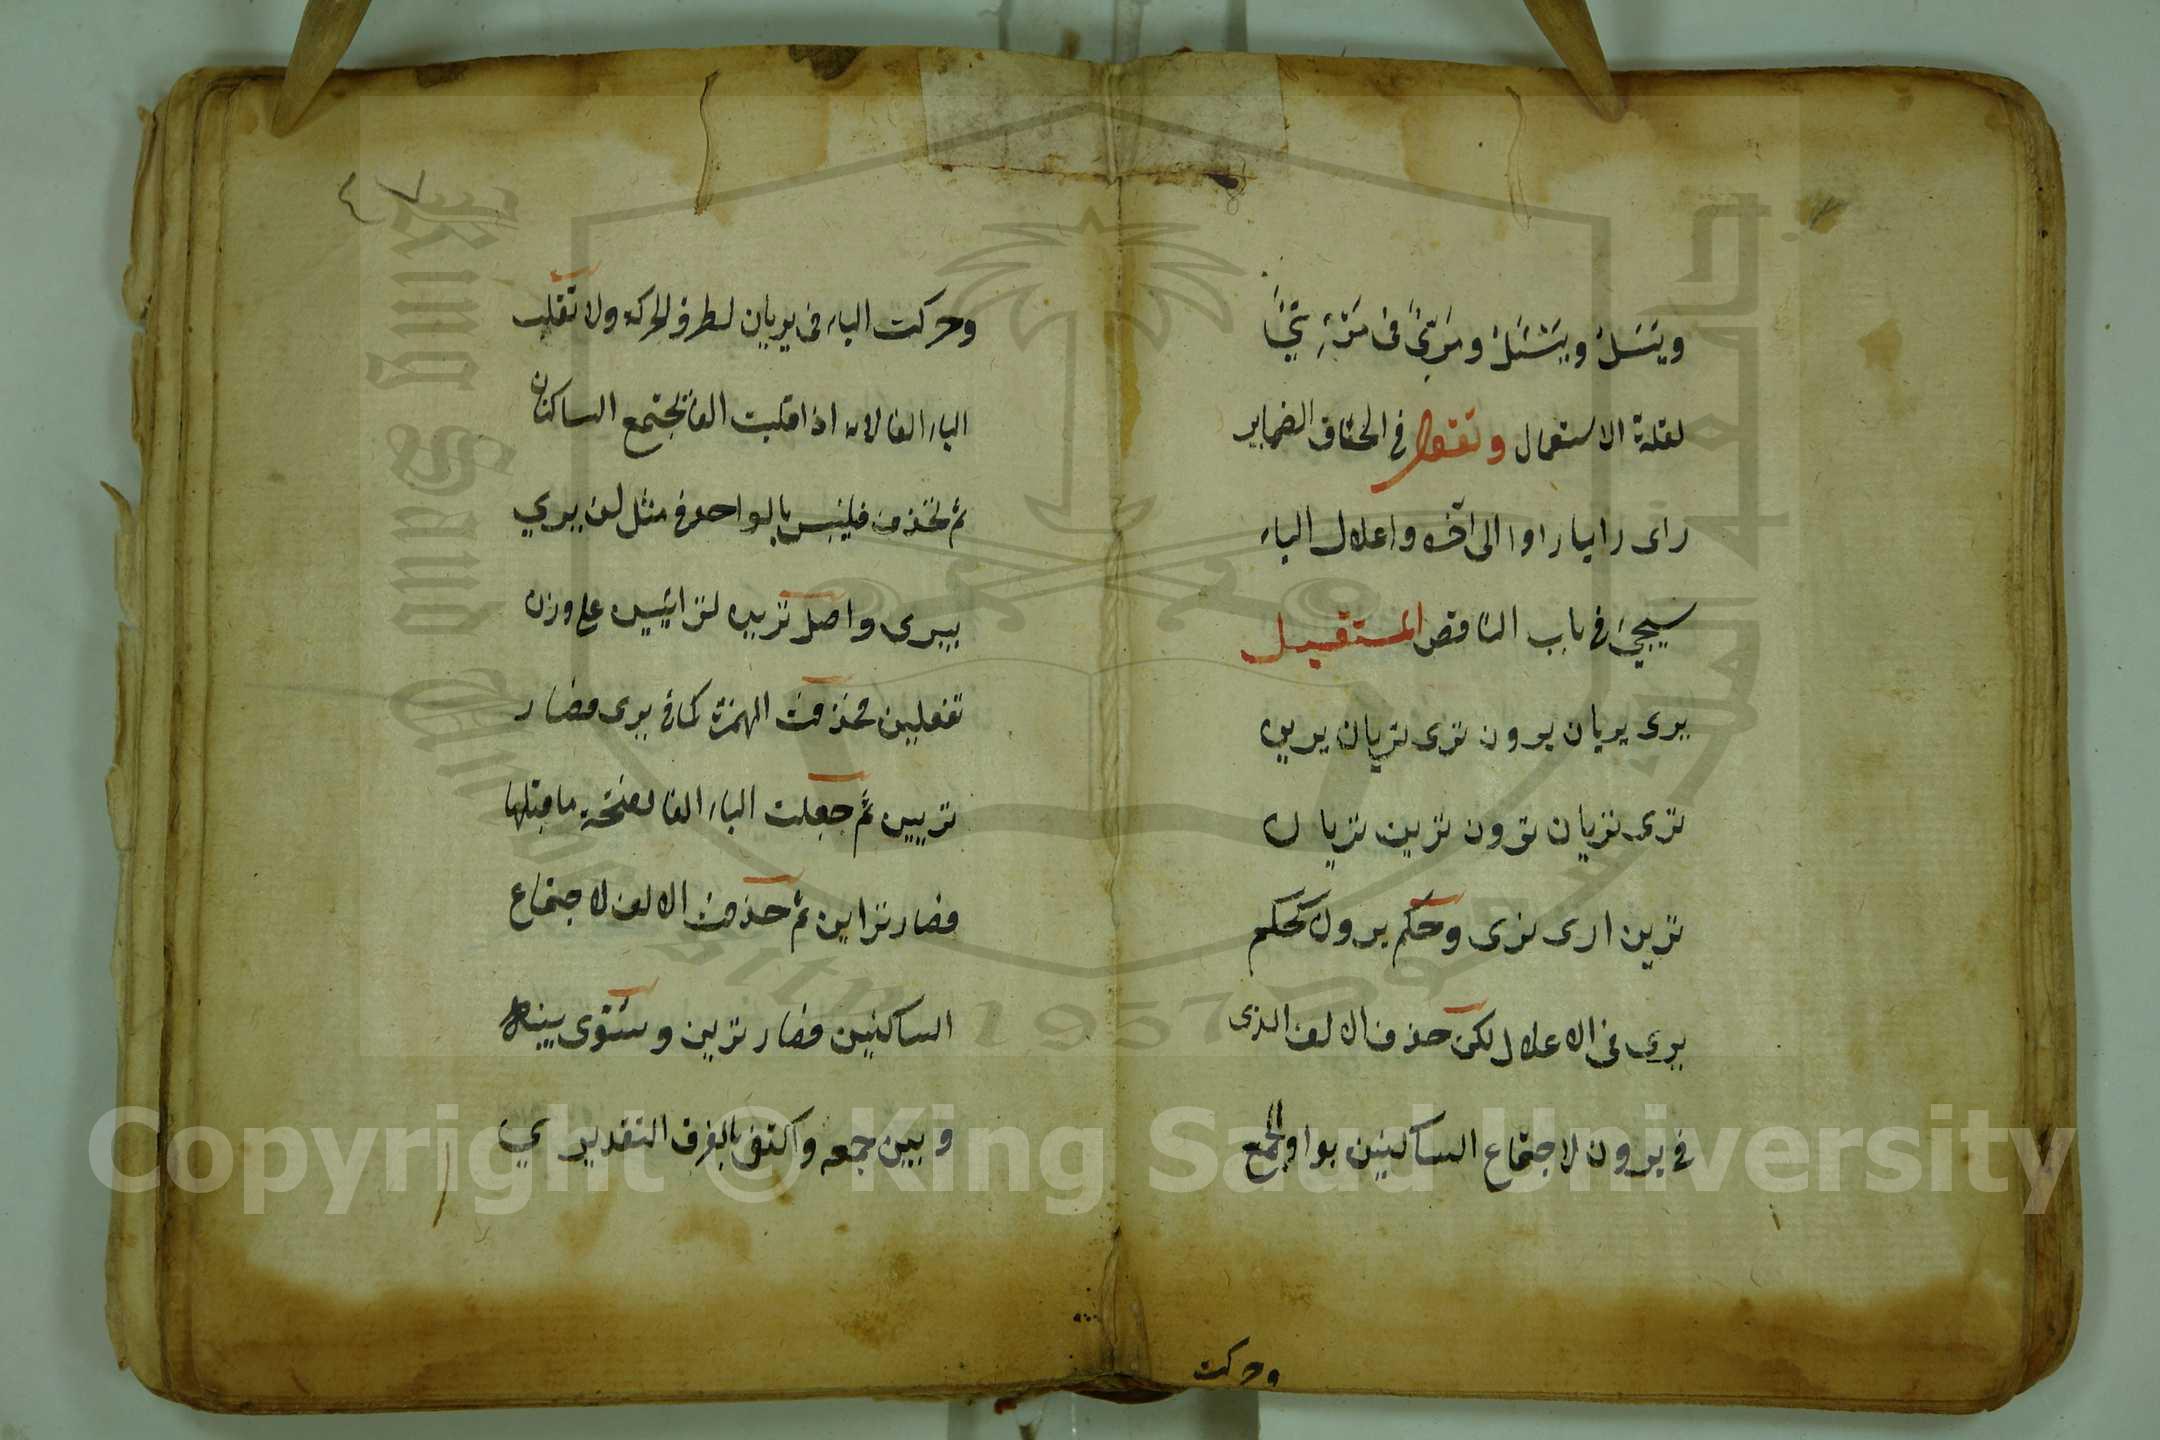 ويَسَلُ ويَسْئَلُ ومَرَىً فى مَرْءِيّ
لقلة الاستعمال وتقول فى الحاق الضماير
راى رايا راوا الى اخره واعلال الياء
سيجئ فى باب الناقص المستقبل
يرى يريان يرون ترى تريان يرين
ترى تريان ترون ترين تريان
ترين ارى نرى وحكم يرون كحكم
يرى فى الاعلال لكن حذف الالف الذى
فى يرون لاجتماع الساكنين بواو الجمع
وحركت
٤٧
وحركت الياء فى يريان لطرو الحركه ولا تقلب
الياء الفا لانه اذا قلبت الفا يجتمع الساكنان
ثم تحذف فيلتبس بالواحد فى مثل لن يرى
يرى واصل ترين ترايين على وزن
تفعلين فحذفت الهمزة كما فى يرى فصار
تريين ثم جعلت الياء الفا لفتحة ما قبلها
فصار تراين ثم حذفت الالف لاجتماع
الساكنين فصار ترين وسوى بينه
وبين جمعه واكتفى بالفرق التقديرى
Copyright © King Saud University
King Saud University
جامعة الملك سعود
1957